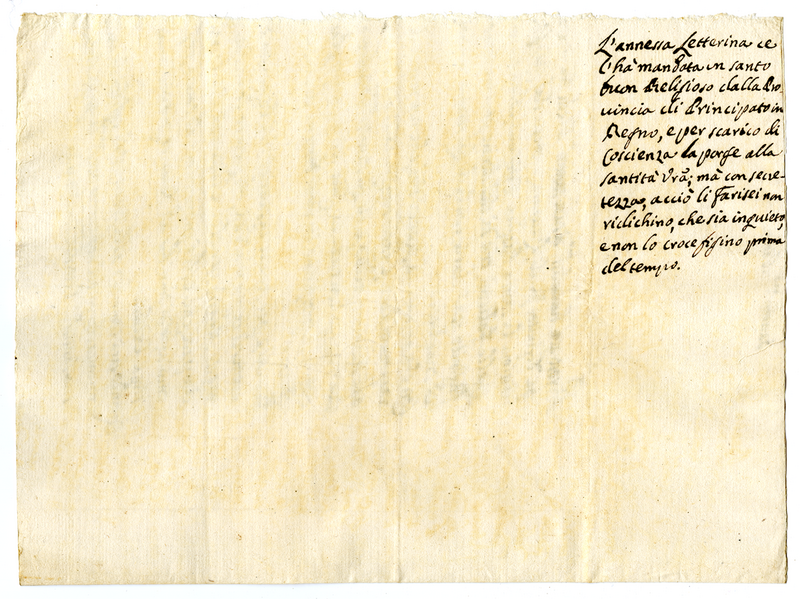 L'annessa Letterina ce
l'hà mandata un santo
buon Religioso dalla Pro-
vincia di Principato in
Regno, e per scarico di
coscienza la porge alla
santità Vrã; mà con secre-
tezza, acciò li Farisei non
dichino, che sia inquieto,
e non lo crocefissino prima
del tempo.